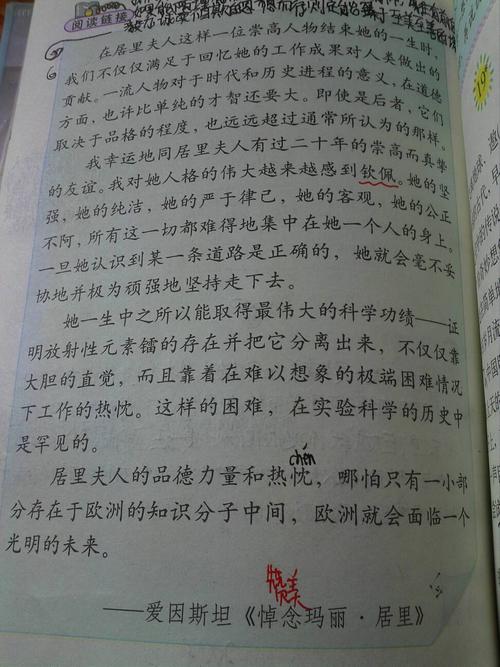 阅读链接
在居里夫人这样一位崇高人物结束她的一生时，
我们不仅仅满足于回忆她的工作成果对人类做出的
贡献。一流人物对于时代和历史进程的意义，在道德
方面，也许比单纯的才智还要大。即使是后者，它们
取决于品格的程度，也远远超过通常所认为的那样。
我幸运地同居里夫人有过二十年的崇高而真挚
的友谊。我对她人格的伟大越来越感到钦佩。她的坚
强，她的纯洁，她的严于律己，她的客观，她的公正
不阿，所有这一切都难得地集中在她一个人的身上。
一旦她认识到某一条道路是正确的，她就会毫不妥
协地并极为顽强地坚持走下去。
她一生中之所以能取得最伟大的科学功绩——证
明放射性元素镭的存在并把它分离出来，不仅仅靠
大胆的直觉，而且靠着在难以想象的极端困难情况
下工作的热忱。这样的困难，在实验科学的历史中
是罕见的。
chén
居里夫人的品德力量和热忱，哪怕只有一小部
分存在于欧洲的知识分子中间，欧洲就会面临一个
光明的未来。
赞美
——爱因斯坦《悼念玛丽·居里》
19